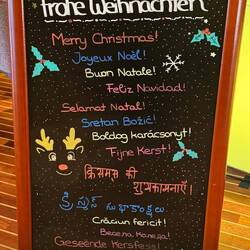 frohe Weihnachten
Merry Christmas!
Joyeux Noël!
Buon Natale!
Feliz Navidad!
Selamat Natal!
Sretan Božić!
Boldog karácsonyt!
Fijne Kerst!
क्रिसमस की
शुभकामनाएँ!
క్రిస్మస్ శుభాకాంక్షలు
Crăciun fericit!
Весела Коледа!
Geseënde Kersfees!